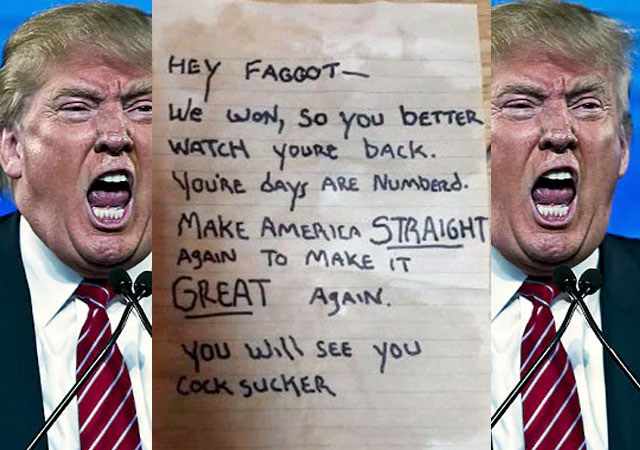 HEY FAGGOT—
We WON, SO you beTTER
WATCH youRE bACK.
You'RE days ARE NumbeRd.
MAKE AMERICA STRAIGHT
AgAIN TO MAKE iT
GREAT AgAIN.
you will SEE you
COCK SUCKER